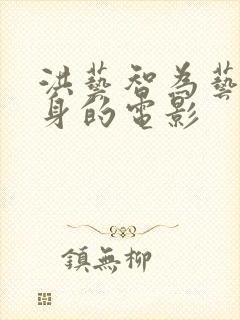 洪藝智為藝
身的電影
鎮無柳